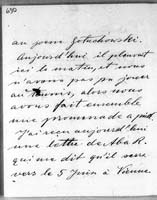 680
au poem Goluchowski.
Aujourd'hui il pleuvait
ici le matin, et nous
n'avons pas pu jouer
au Tennis, alors nous
avons fait ensemble
une promenade a pied.
J'ai reçu aujourd'hui
une lettre de Abe R.
qui me dit qu'il sera
vers le 5 Juin à Vienne.